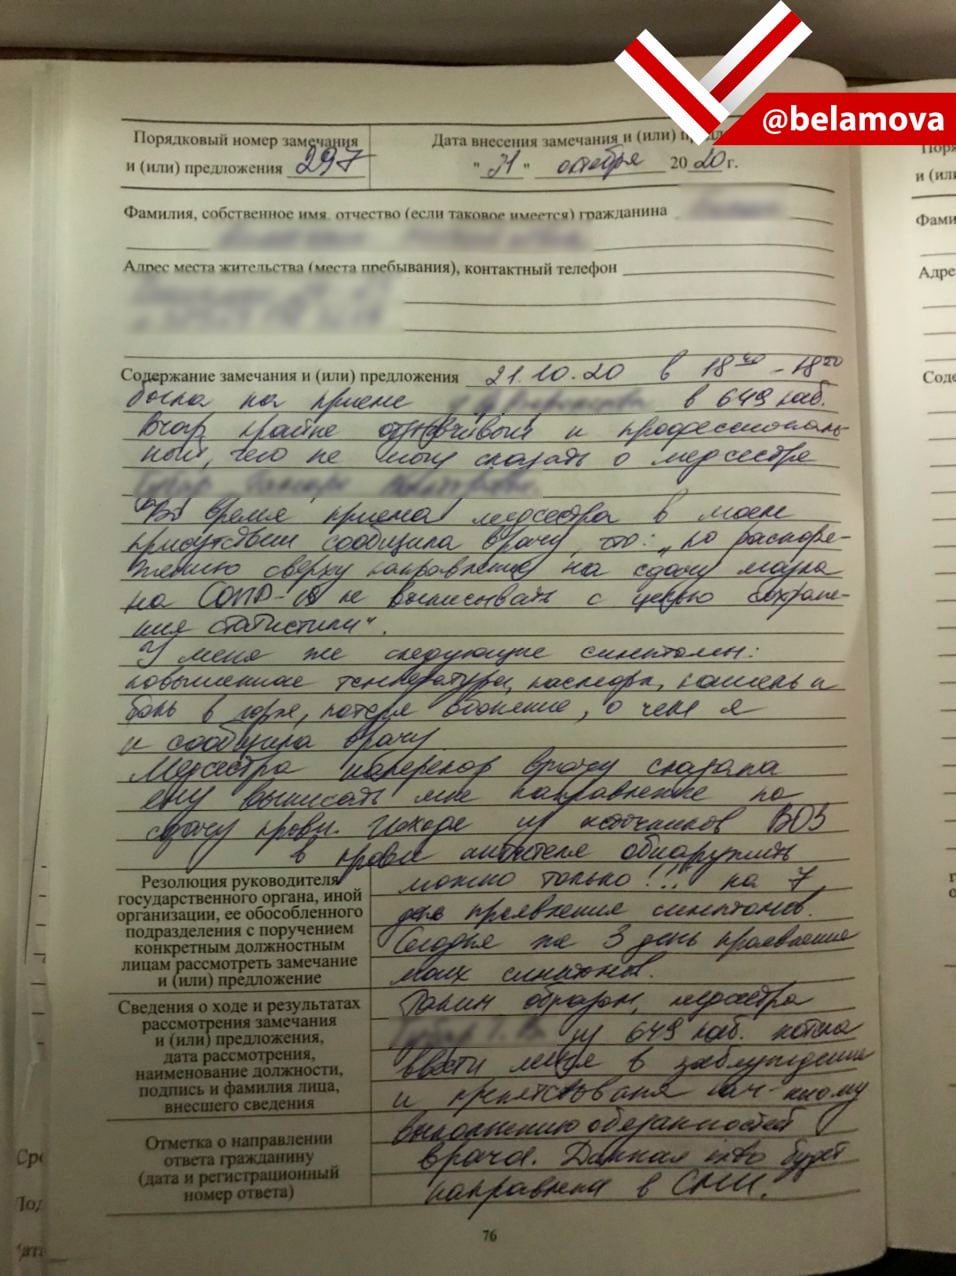 @belamova
Порядковый номер замечания
и (или) предложения 297
Дата внесения замечания и (или)
"21" октября 2020г.
Фамилия, собственное имя, отчество (если таковое имеется) гражданина
Адрес места жительства (места пребывания), контактный телефон
Содержание замечания и (или) предложения 21.10.20 в 18 - 18
была на приеме в 649 каб.
Врач крайне отзывчивый и профессиональ-
ный, чего не могу сказать о медсестре
Во время приема медсестра в моем
присутствии сообщила врачу, что: „по распоря-
жению сверху направление на сдачу мазка
на COVID-19 не выписывать с целью сохране-
ния статистики“.
У меня же следующие симптомы:
повышенная температура, насморк, кашель и
боль в горле, потеря обоняние, о чем я
и сообщила врачу
Медсестра наперекор врачу сказала
ему выписать мне направление по
сдачу крови. Исходя из источников ВОЗ
в крови антитела обнаружить
можно только!!! на 7
день проявление симптомов.
Сегодня же 3 день проявление
моих симптомов.
Таким образом, медсестра
из 649 каб. хотела
ввести меня в заблуждение
и препятствовала
выполнению обязанностей
врача. Данная инфо будет
направлена в СМИ.
Резолюция руководителя
государственного органа, иной
организации, ее обособленного
подразделения с поручением
конкретным должностным
лицам рассмотреть замечание
и (или) предложение
Сведения о ходе и результатах
рассмотрения замечания
и (или) предложения,
дата рассмотрения,
наименование должности,
подпись и фамилия лица,
внесшего сведения
Отметка о направлении
ответа гражданину
(дата и регистрационный
номер ответа)
76
и (или
Фами
Адре